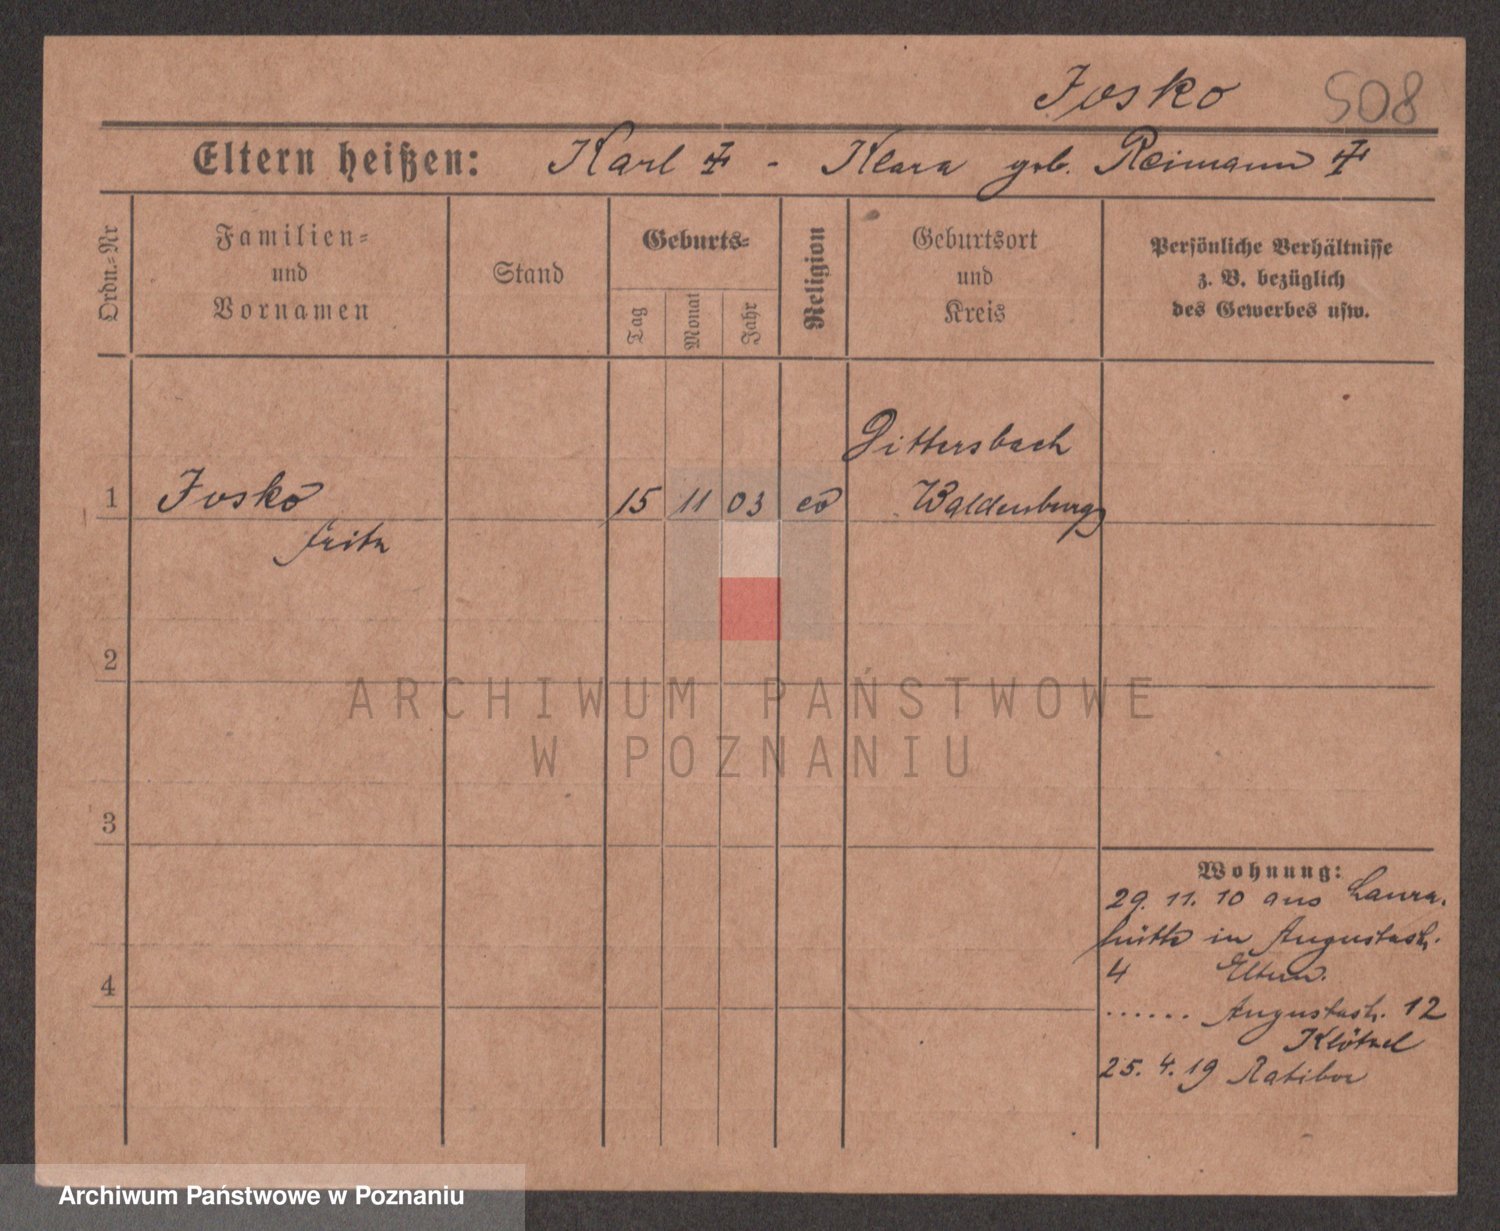 Josko 508
Eltern heißen: Karl ‡ - Klara geb. Reimann ‡
Ordn.-Nr
Familien-
und
Vornamen
Stand
Geburts-
Tag
Monat
Jahr
Religion
Geburtsort
und
Kreis
Persönliche Verhältnisse
z. B. bezüglich
des Gewerbes usw.
Dittersbach
1 Josko 15 11 03 ev Waldenburg
Fritz
2
ARCHIWUM PAŃSTWOWE
W POZNANIU
3
Wohnung:
29. 11. 10 aus Laura-
hütte in Augustastr.
4 Eltern.
4
...... Augustastr. 12
Klötzel
25. 4. 19 Ratibor
Archiwum Państwowe w Poznaniu